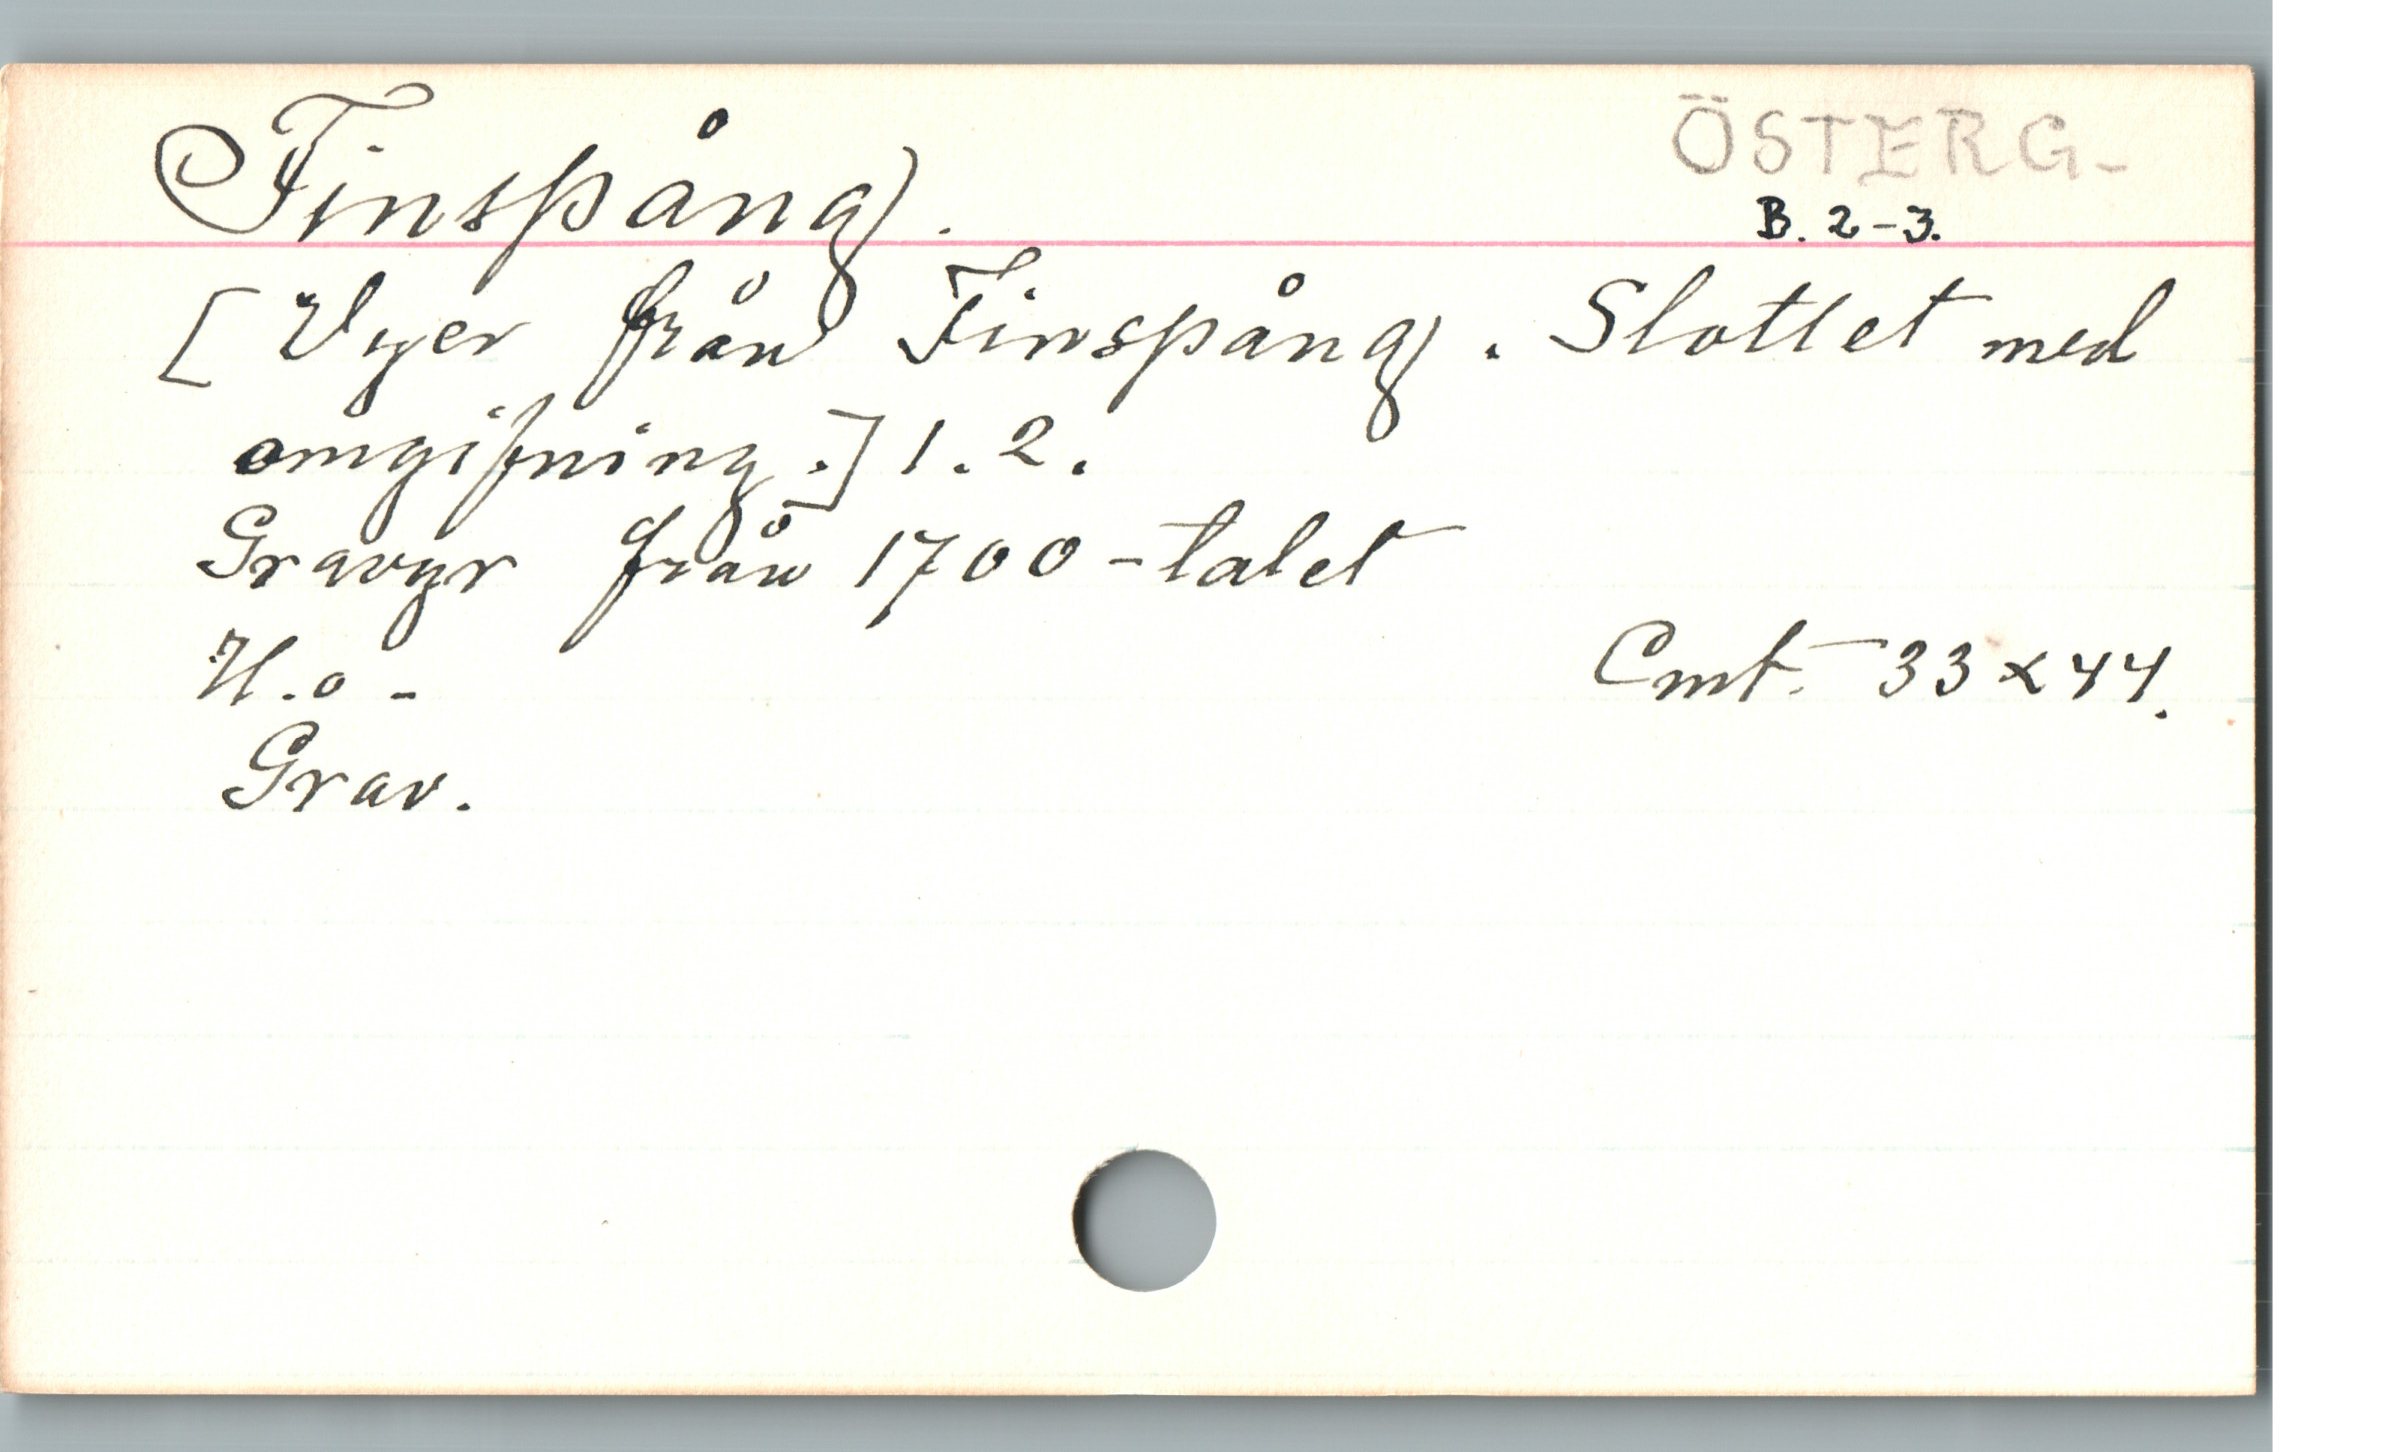 Finspång.
ÖSTERG-
B. 2-3.
[Vyer från Finspång. Slottet med
omgifning.] 1. 2.
Gravyr från 1700-talet
H. o -
Cmt. 33 x 44.
Grav.